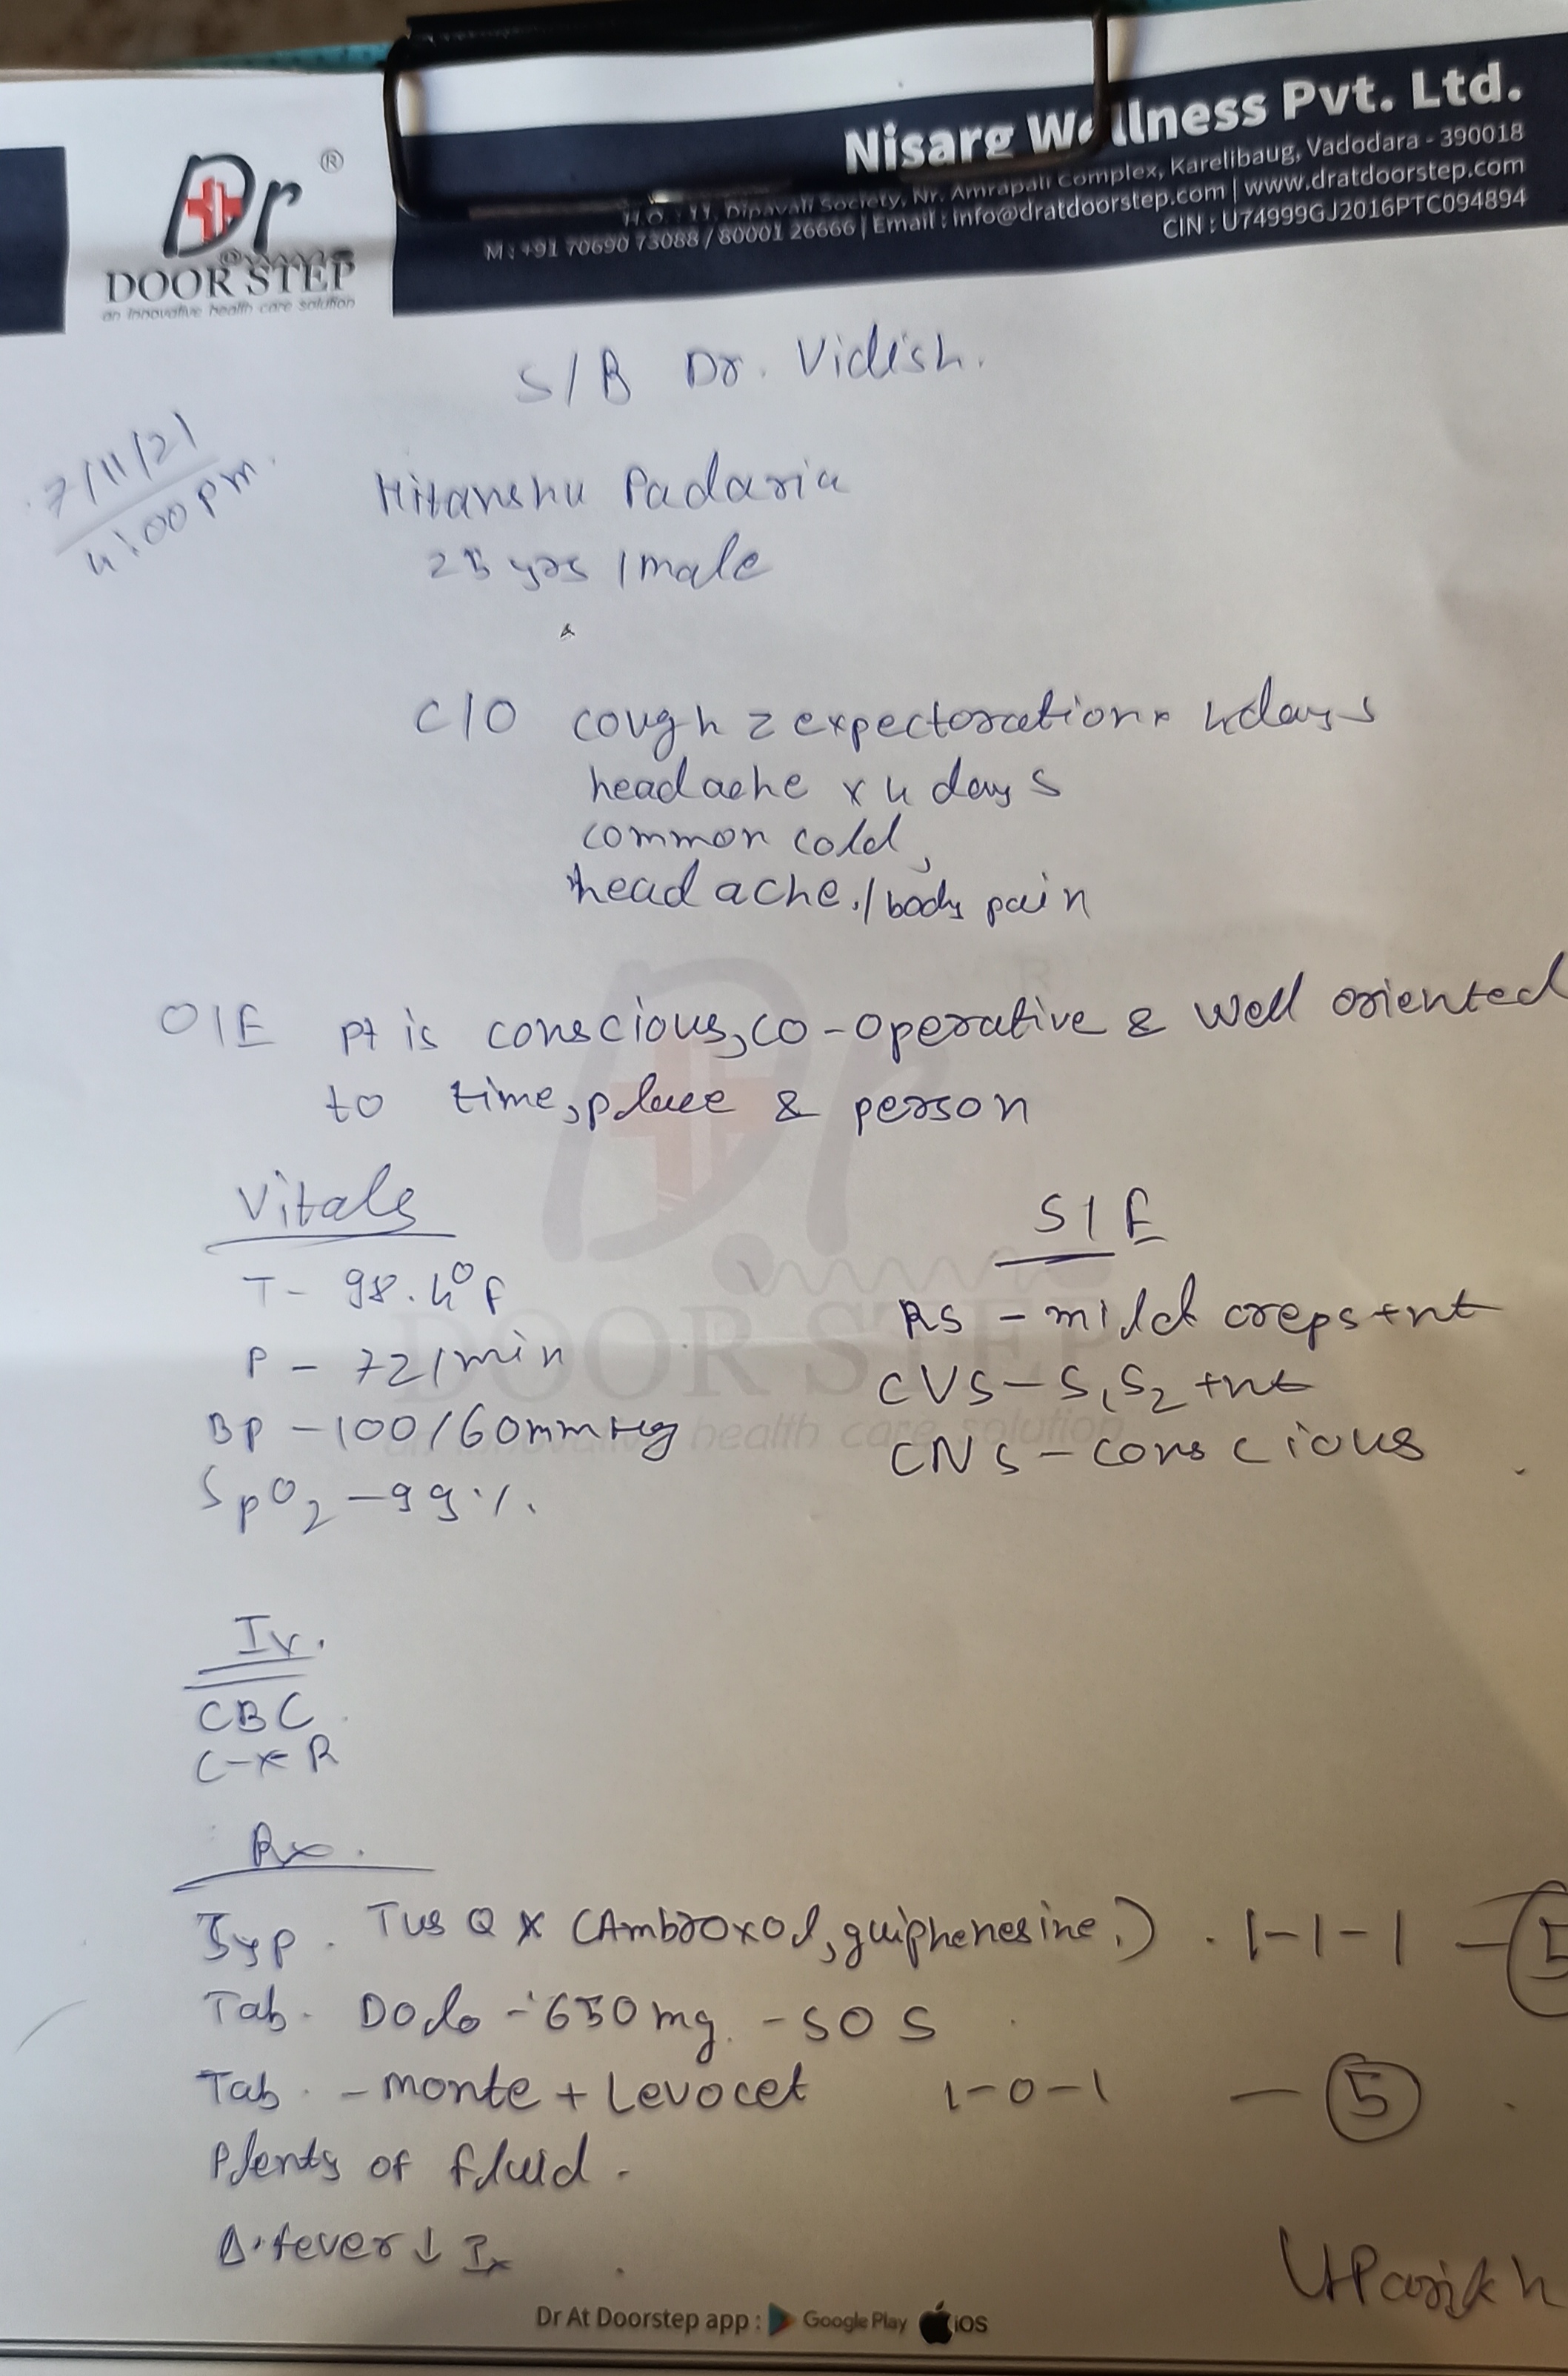 Dr ®
@
DOOR STEP
an innovative health care solution
Nisarg Wellness Pvt. Ltd.
H.O. : 11, Dipavali Society, Nr. Amrapali Complex, Karelibaug, Vadodara - 390018
M : +91 70690 73088 / 80001 26666 | Email : info@dratdoorstep.com | www.dratdoorstep.com
CIN : U74999GJ2016PTC094894
S/B Dr. Vidish.
7/11/21
4:00 pm.
Hitanshu Padaria
25 yrs / male
C/O cough z expectoration x 4 days
headache x 4 days
common cold,
headache./body pain
O/E pt is conscious, co-operative & well oriented
to time, place & person
Vitals
T - 98.4°F
P - 72/min
BP - 100/60mmHg
SpO2 - 99 %.
S/E
RS - mild creps +nt
CVS - S1S2 +nt
CNS - conscious
Ix.
CBC
C-XR
Rx.
Syp. Tus Q X (Ambroxol, guiphenesine.) . 1-1-1 - 5
Tab. Dolo - 650 mg. - SOS
Tab. - monte + Levocet 1-0-1 - 5
Plenty of fluid.
Δ. fever ↓ Ix
UParikh
Dr At Doorstep app : Google Play iOS